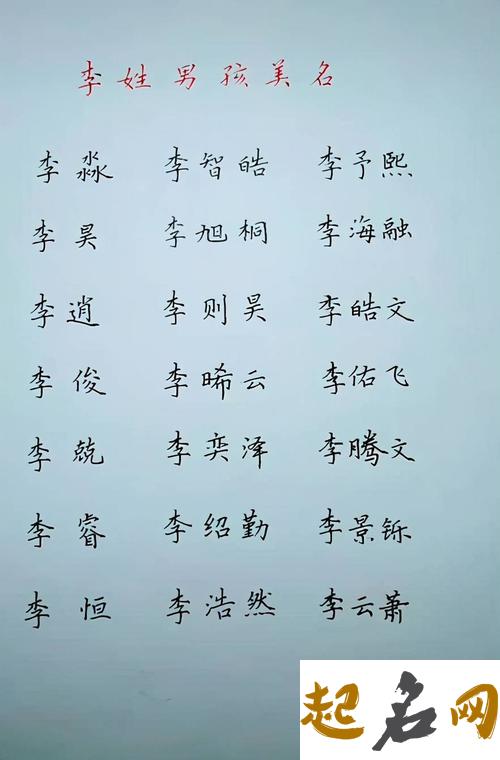 李姓男孩美名
李淼 李智皓 李予熙
李昊 李旭桐 李海融
李逍 李则昊 李皓文
李俊 李晞云 李佑飞
李兢 李奕泽 李腾文
李睿 李绍勤 李景铄
李恒 李浩然 李云萧
起名网